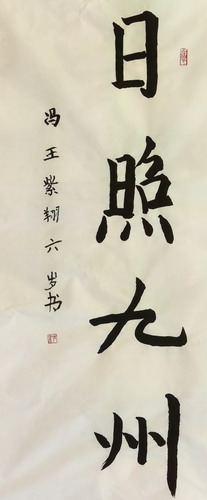 日照九州
冯王紫翔六岁书